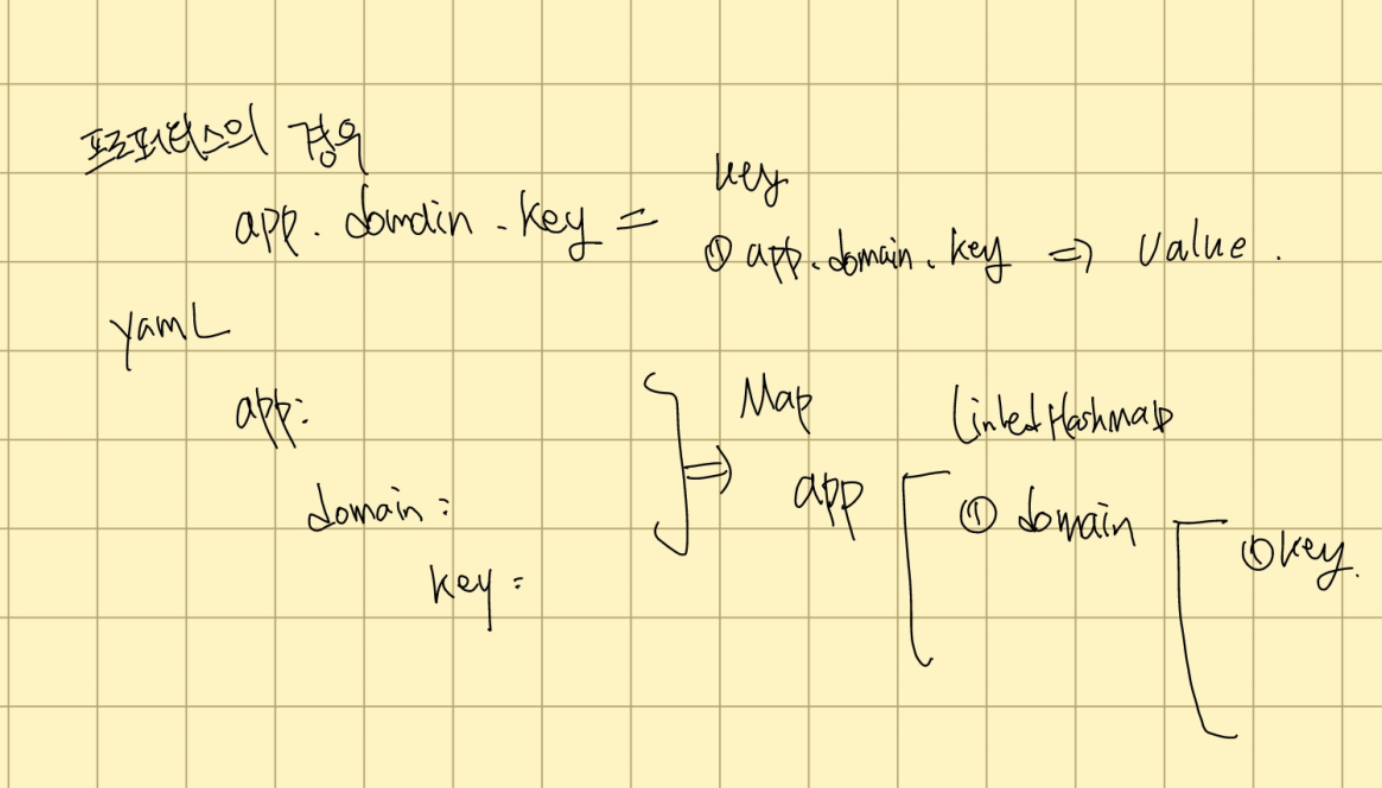 프로퍼티스의 경우
app. domain. key =
key
① app.domain.key ⇒ value.
yamL
app:
domain:
key:
⇒ Map
LinkedHashmap
app
① domain
① key.